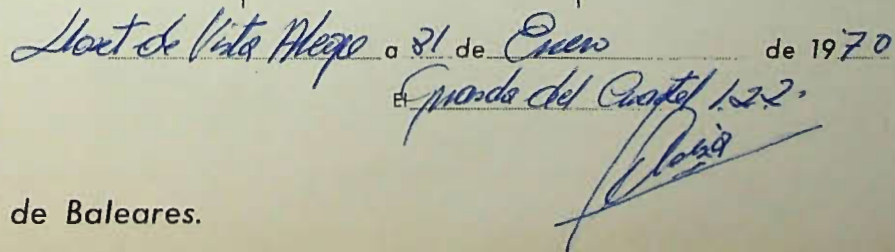 Lloret de Vista Alegre a 31 de Enero de 1970
El Guarda del Cuartel 1.2.2.
de Baleares.